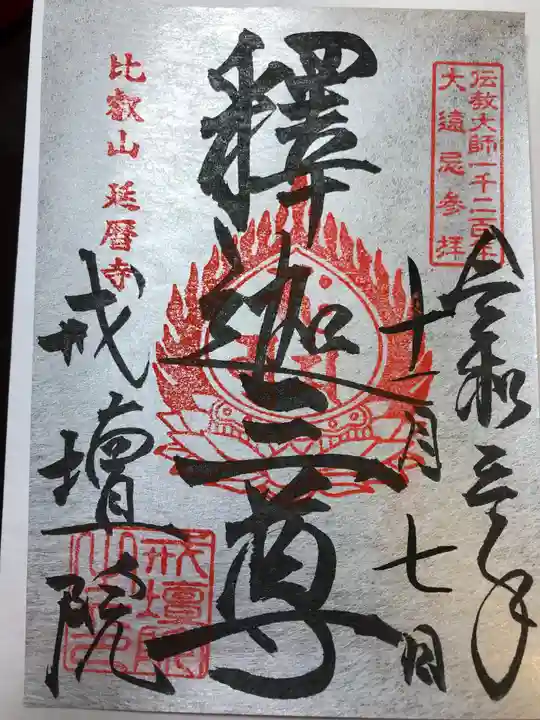 伝教大師一千二百年
大遠忌参拝
令和三年
十一月七日
釋迦三尊
比叡山 延暦寺
戒壇院